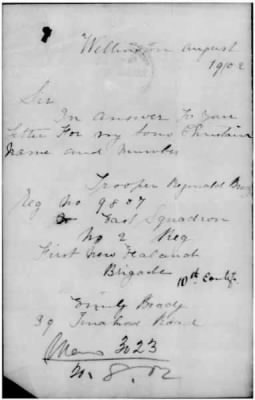 Wellington August
1902
Sir
In answer To your
Letter For my sons Christian
Name and Number
Trooper Reginald Brady
Reg No 9807
East Squadron
No 2 Reg
First New Zealand
Brigade
10th Contgt
Emily Brady
39 Road
3023
8.02